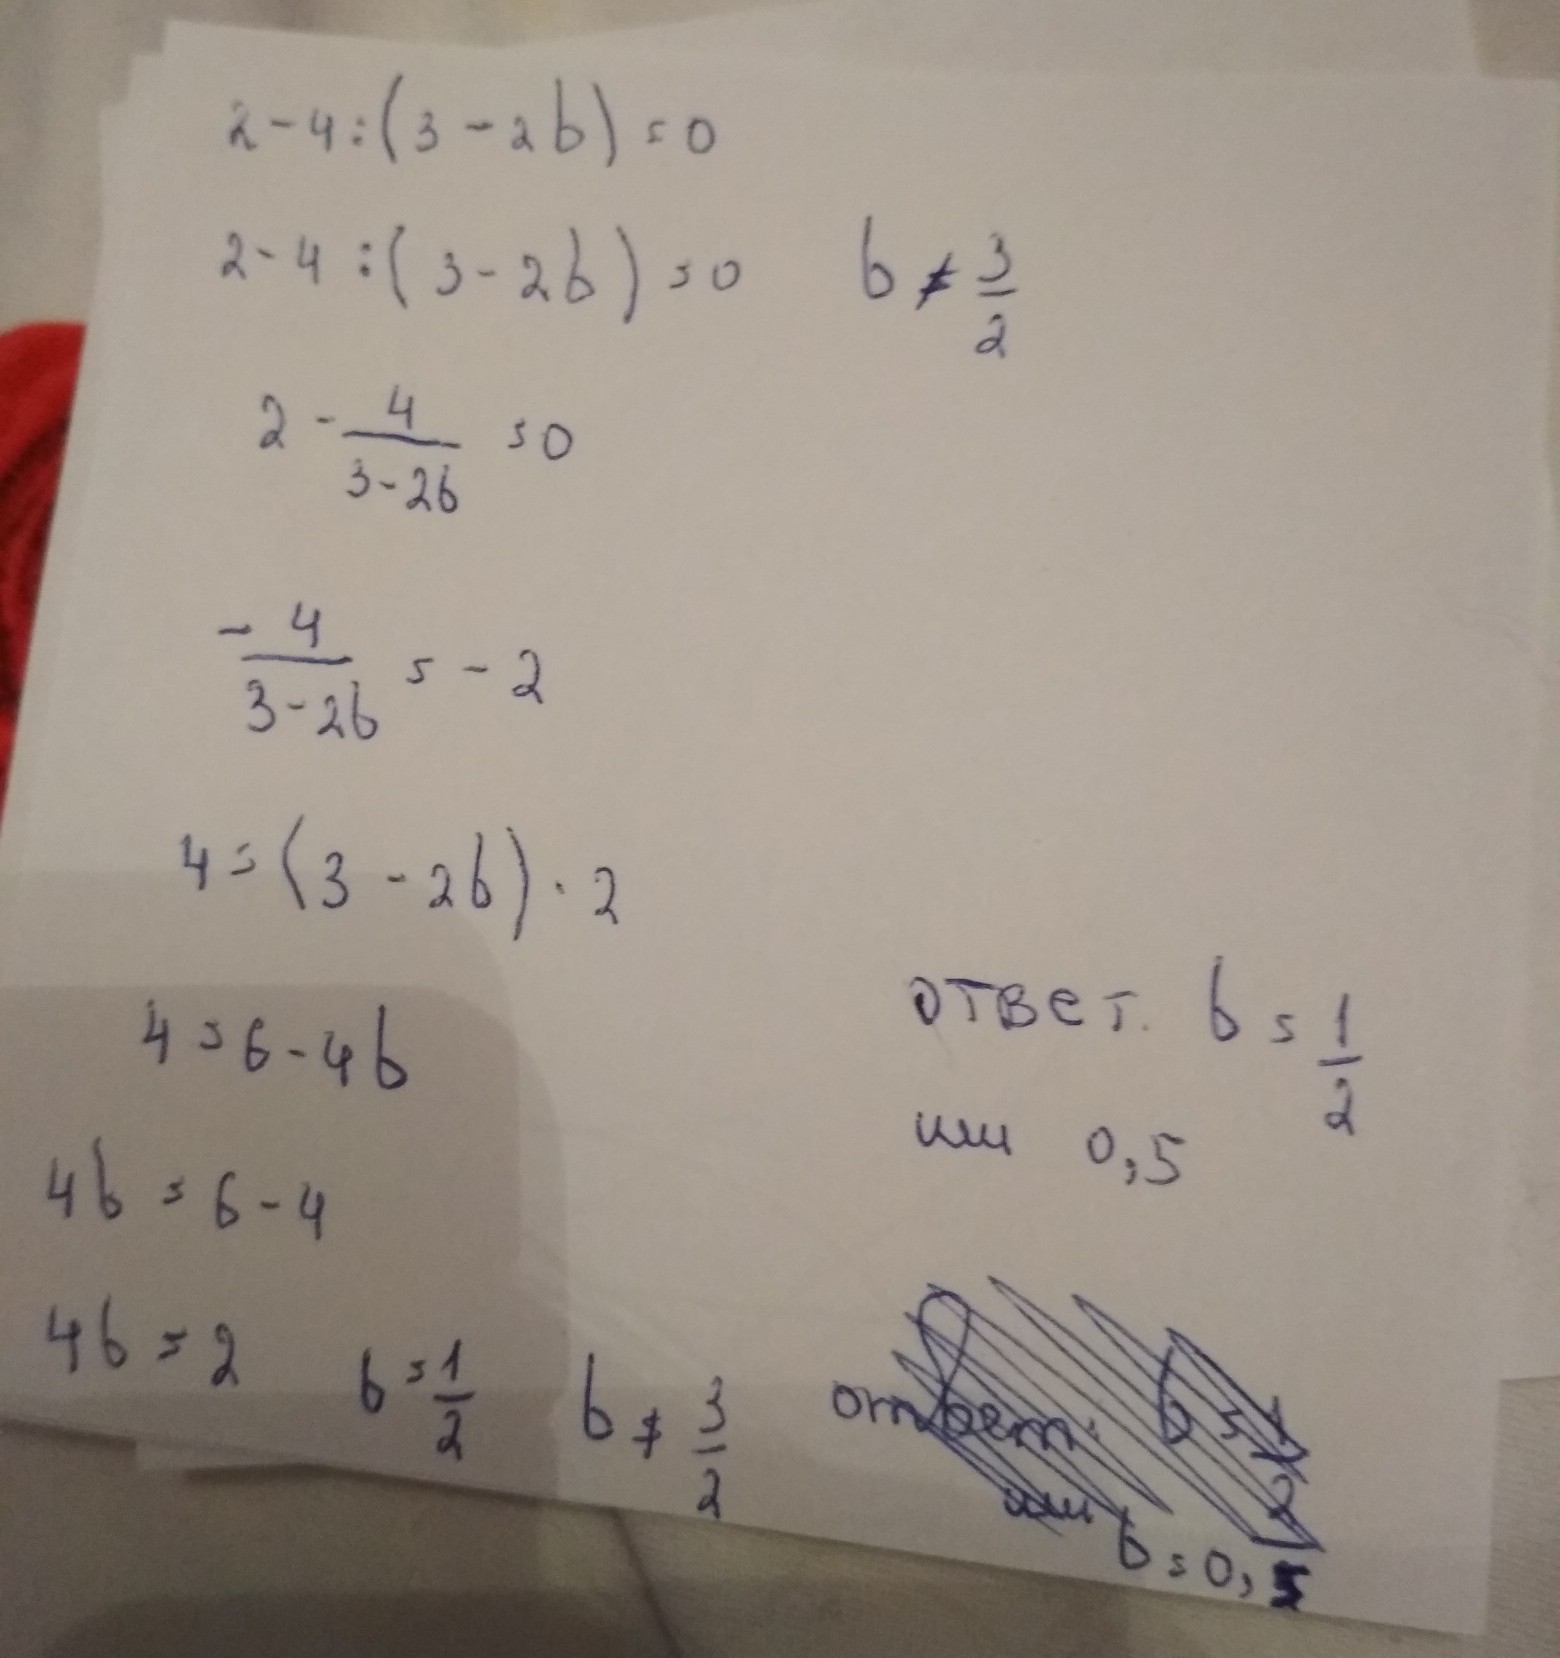 2 - 4 : (3 - 2b) = 0
2 - 4 : (3 - 2b) = 0 b ≠ 3/2
2 - 4/(3 - 2b) = 0
- 4/(3 - 2b) = - 2
4 = (3 - 2b) · 2
4 = 6 - 4b
4b = 6 - 4
4b = 2 b = 1/2 b ≠ 3/2
ответ. b = 1/2
или 0,5
ответ: b = 1/2
или b = 0,5